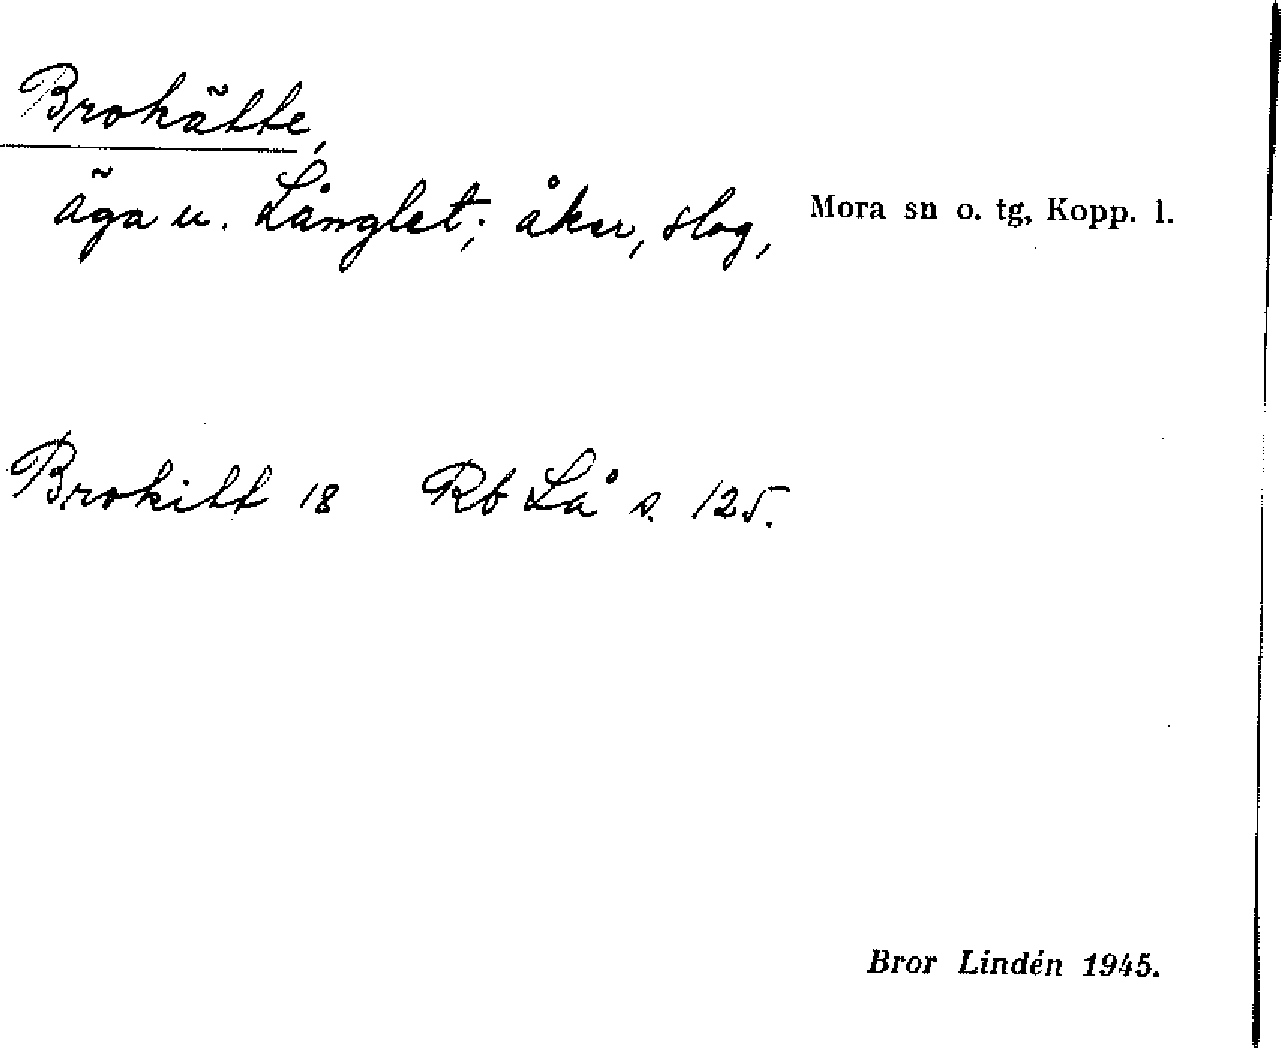 Brokätte,
äga u. Långlet; åker, slog,
Mora sn o. tg, Kopp. l.
Brokitt 18 Rb Lå s. 125.
Bror Lindén 1945.